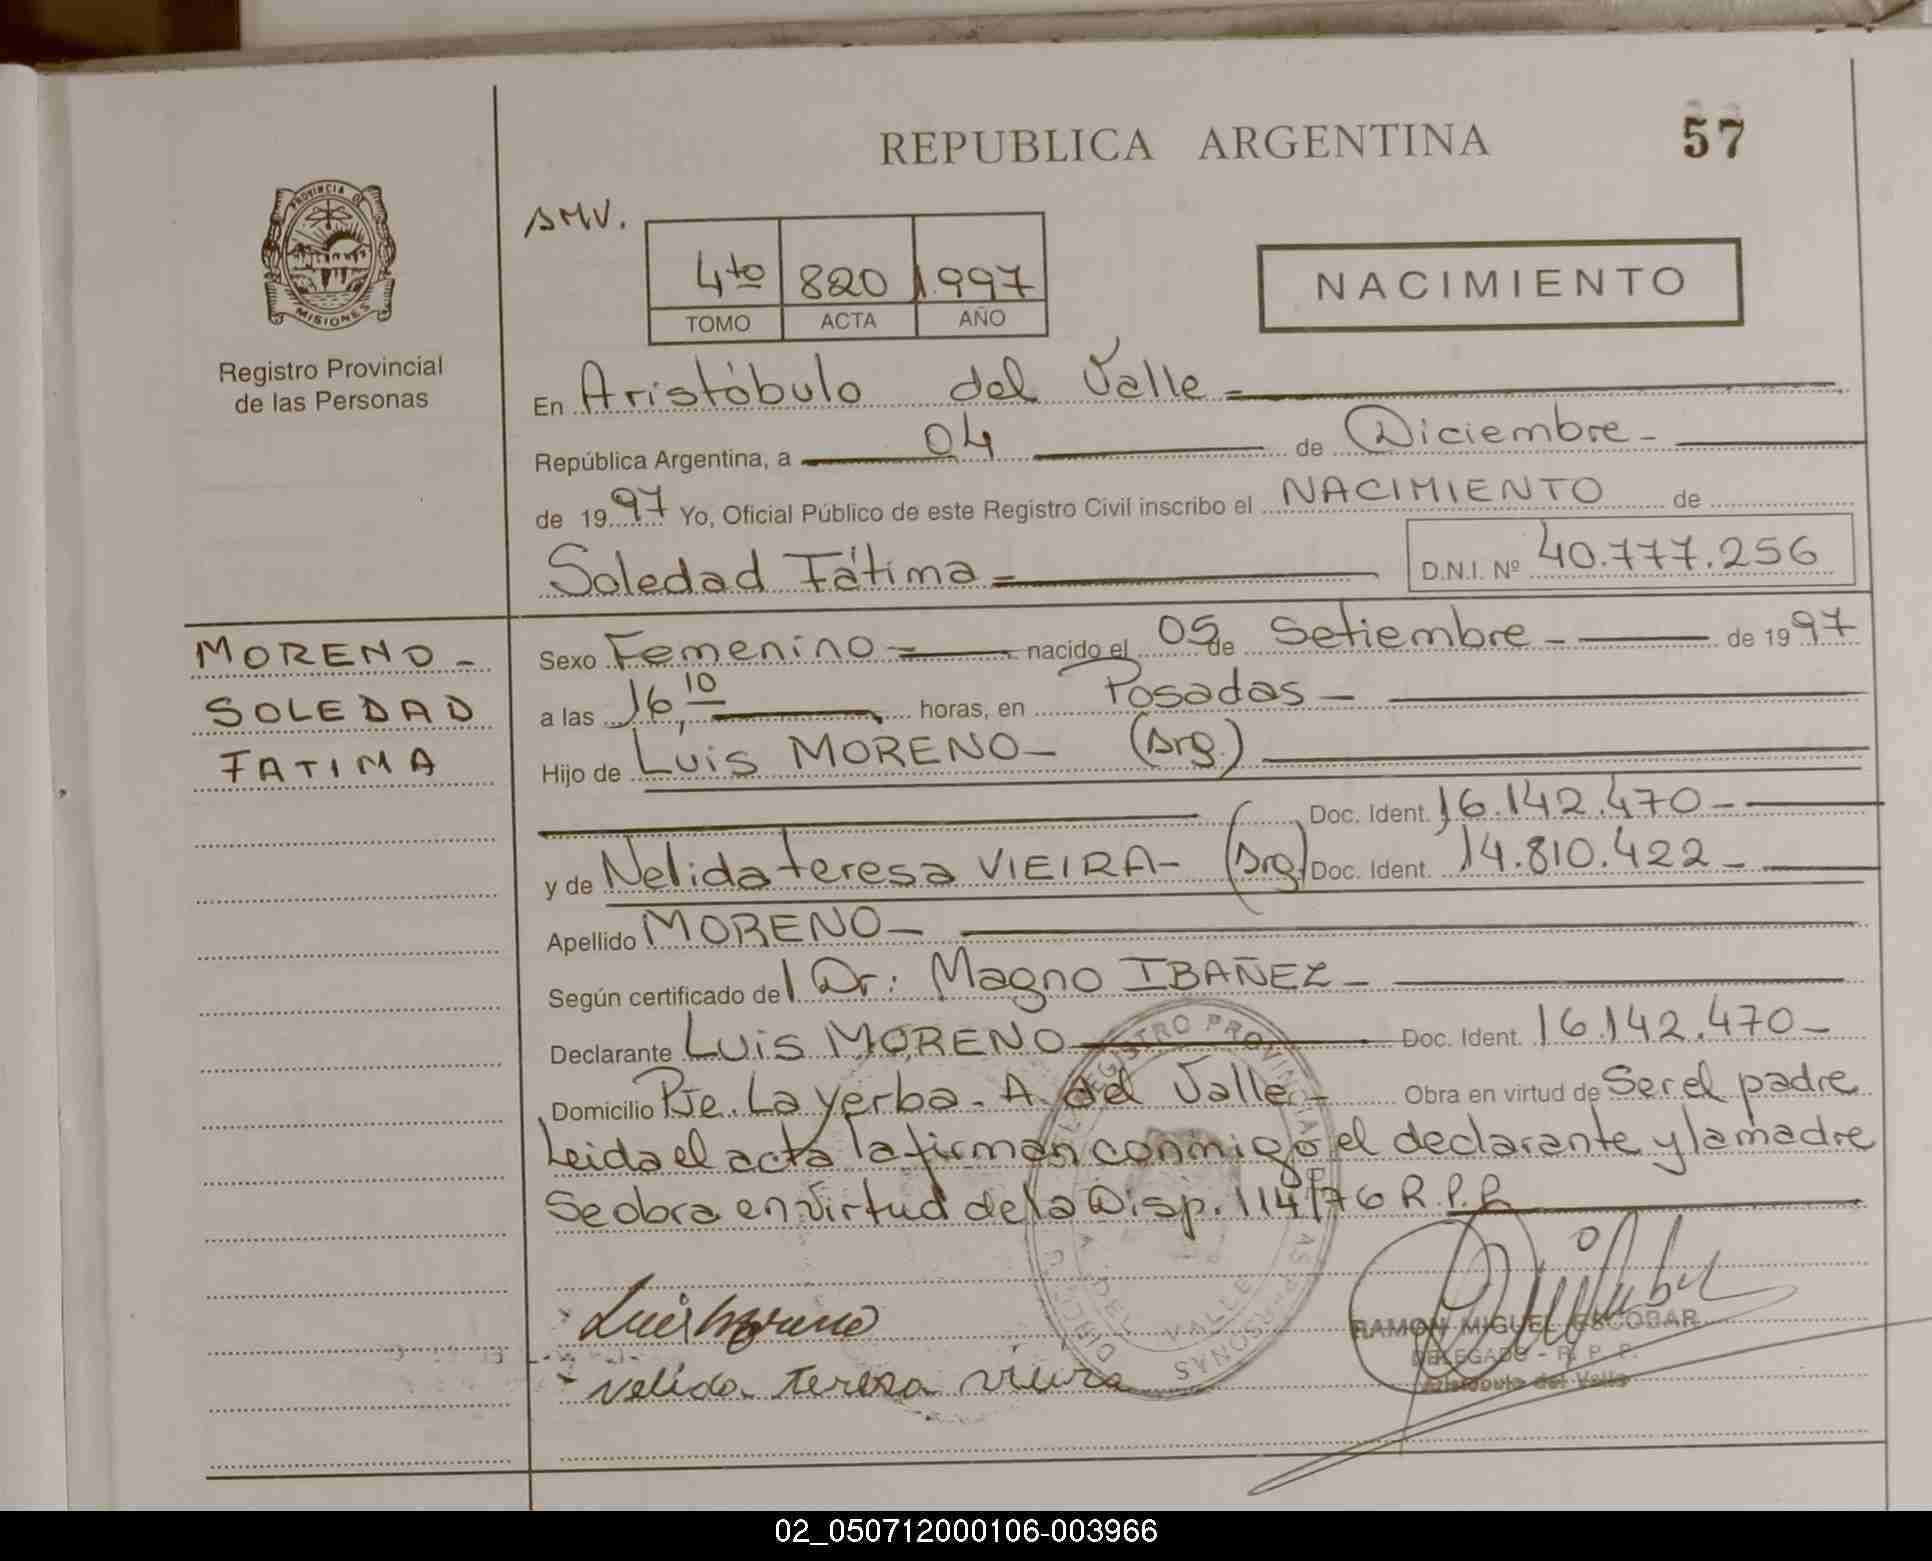 REPUBLICA ARGENTINA
57
PROVINCIA DE
MISIONES
Registro Provincial
de las Personas
SMV.
4to 820 1.997
TOMO ACTA AÑO
NACIMIENTO
En Aristóbulo del Valle =
República Argentina, a 04 de Diciembre -
de 1997 Yo, Oficial Público de este Registro Civil inscribo el NACIMIENTO de
Soledad Fátima = D.N.I. Nº 40.777.256
MORENO -
SOLEDAD
FATIMA
Sexo Femenino = nacido el 05 de Setiembre - de 1997
a las 16,10 horas, en Posadas -
Hijo de Luis MORENO - (Arg.)
Doc. Ident. 16.142.470 -
y de Nelida teresa VIEIRA - (Arg.) Doc. Ident. 14.810.422 -
Apellido MORENO -
Según certificado del Dr: Magno IBAÑEZ -
Declarante Luis MORENO Doc. Ident. 16.142.470 -
Domicilio Pje. La yerba - A. del Valle - Obra en virtud de Ser el padre
Leida el acta la firman conmigo el declarante y la madre
Se obra en virtud de la Disp. 114/76 R.P.P.
REGISTRO PROVINCIAL
PERSONAS
A. DEL VALLE
Luis Moreno
nelida teresa vieira
RAMON MIGUEL ESCOBAR
DELEGADO - R. P. P.
Aristobulo del Valle
02_050712000106-003966